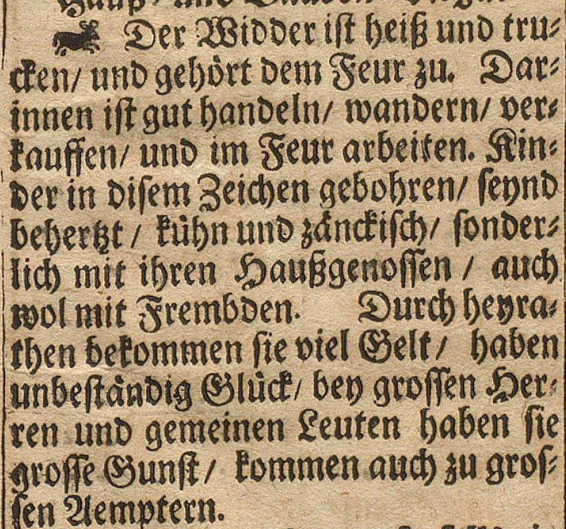 Der Widder iſt heiß und tru⸗
cken/ und gehört dem Feur zu. Dar⸗
innen iſt gut handeln/ wandern/ ver⸗
kauffen/ und im Feur arbeiten. Kin⸗
der in diſem Zeichen gebohren/ ſeynd
behertzt/ kühn und zänckiſch/ ſonder⸗
lich mit ihren Haußgenoſſen / auch
wol mit Frembden. Durch heyra⸗
then bekommen ſie viel Gelt/ haben
unbeſtändig Glück/ bey groſſen Her⸗
ren und gemeinen Leuten haben ſie
groſſe Gunſt/ kommen auch zu groſ⸗
ſen Aemptern.